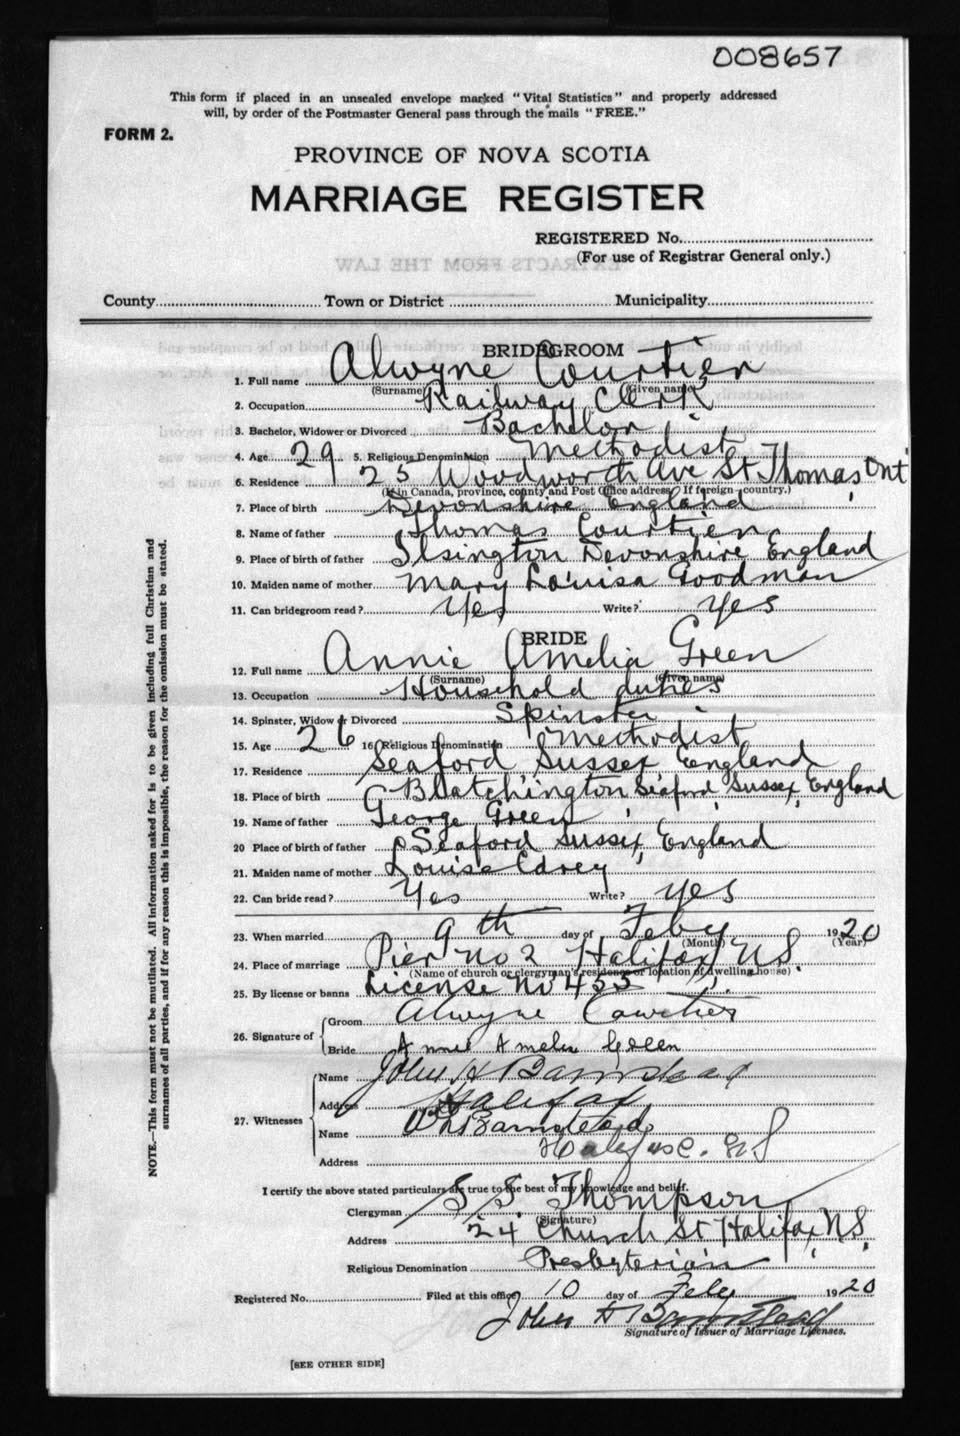 008657
This form if placed in an unsealed envelope marked "Vital Statistics" and properly addressed
will, by order of the Postmaster General pass through the mails "FREE."
FORM 2.
PROVINCE OF NOVA SCOTIA
MARRIAGE REGISTER
REGISTERED No.
(For use of Registrar General only.)
County Town or District Municipality
BRIDEGROOM
1. Full name Alwyne Courtier
(Surname) (Given name)
2. Occupation Railway Clerk
3. Bachelor, Widower or Divorced Bachelor
4. Age 29 5. Religious Denomination Methodist
6. Residence 25 Woodworth Ave St Thomas, Ont
(If in Canada, province, county and Post Office address. If foreign country.)
7. Place of birth Devonshire England
8. Name of father Thomas Courtier
9. Place of birth of father Ilsington Devonshire England
10. Maiden name of mother Mary Louisa Goodman
11. Can bridegroom read? Yes Write? Yes
BRIDE
12. Full name Annie Amelia Green
(Surname) (Given name)
13. Occupation Household duties
14. Spinster, Widow or Divorced Spinster
15. Age 26 16. Religious Denomination Methodist
17. Residence Seaford Sussex England
18. Place of birth Blatchington Seaford, Sussex, England
19. Name of father George Green
20 Place of birth of father Seaford Sussex, England
21. Maiden name of mother Louise Carey
22. Can bride read? Yes Write? Yes
23. When married 9th day of Feby 1920
(Month) (Year)
24. Place of marriage Pier no 2 Halifax, N.S.
(Name of church or clergyman's residence or location of dwelling house)
25. By license or banns License No 433
26. Signature of Groom Alwyne Courtier
Bride Annie Amelia Green
27. Witnesses Name John H Barnstead
Address Halifax
Name Barnstead
Address Halifax. N S
I certify the above stated particulars are true to the best of my knowledge and belief.
Clergyman S. S. Thompson
(Signature)
Address 24 Church St Halifax, N.S.
Religious Denomination Presbyterian
Registered No. Filed at this office 10 day of Feby 1920
John H Barnstead
Signature of Issuer of Marriage Licenses.
[SEE OTHER SIDE]
NOTE.—This form must not be mutilated. All information asked for is to be given including full Christian and
surnames of all parties, and if for any reason this is impossible, the reason for the omission must be stated.